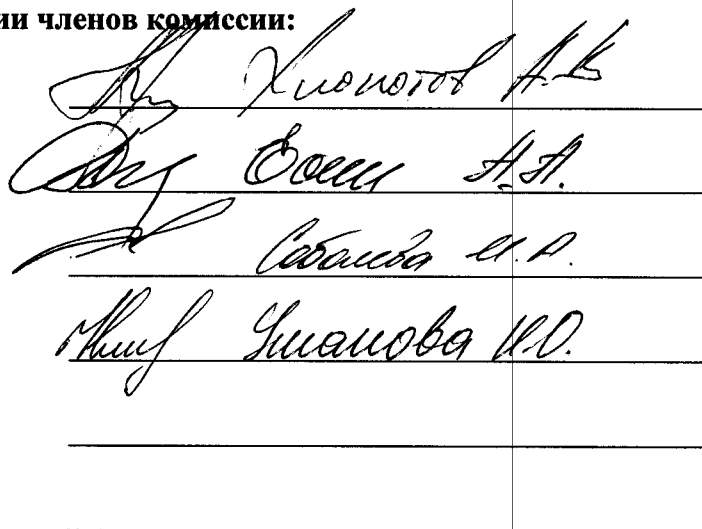 ии членов комиссии:
Хлопотов А.В
А.А.
Соболева И.А.
Ушакова И.О.